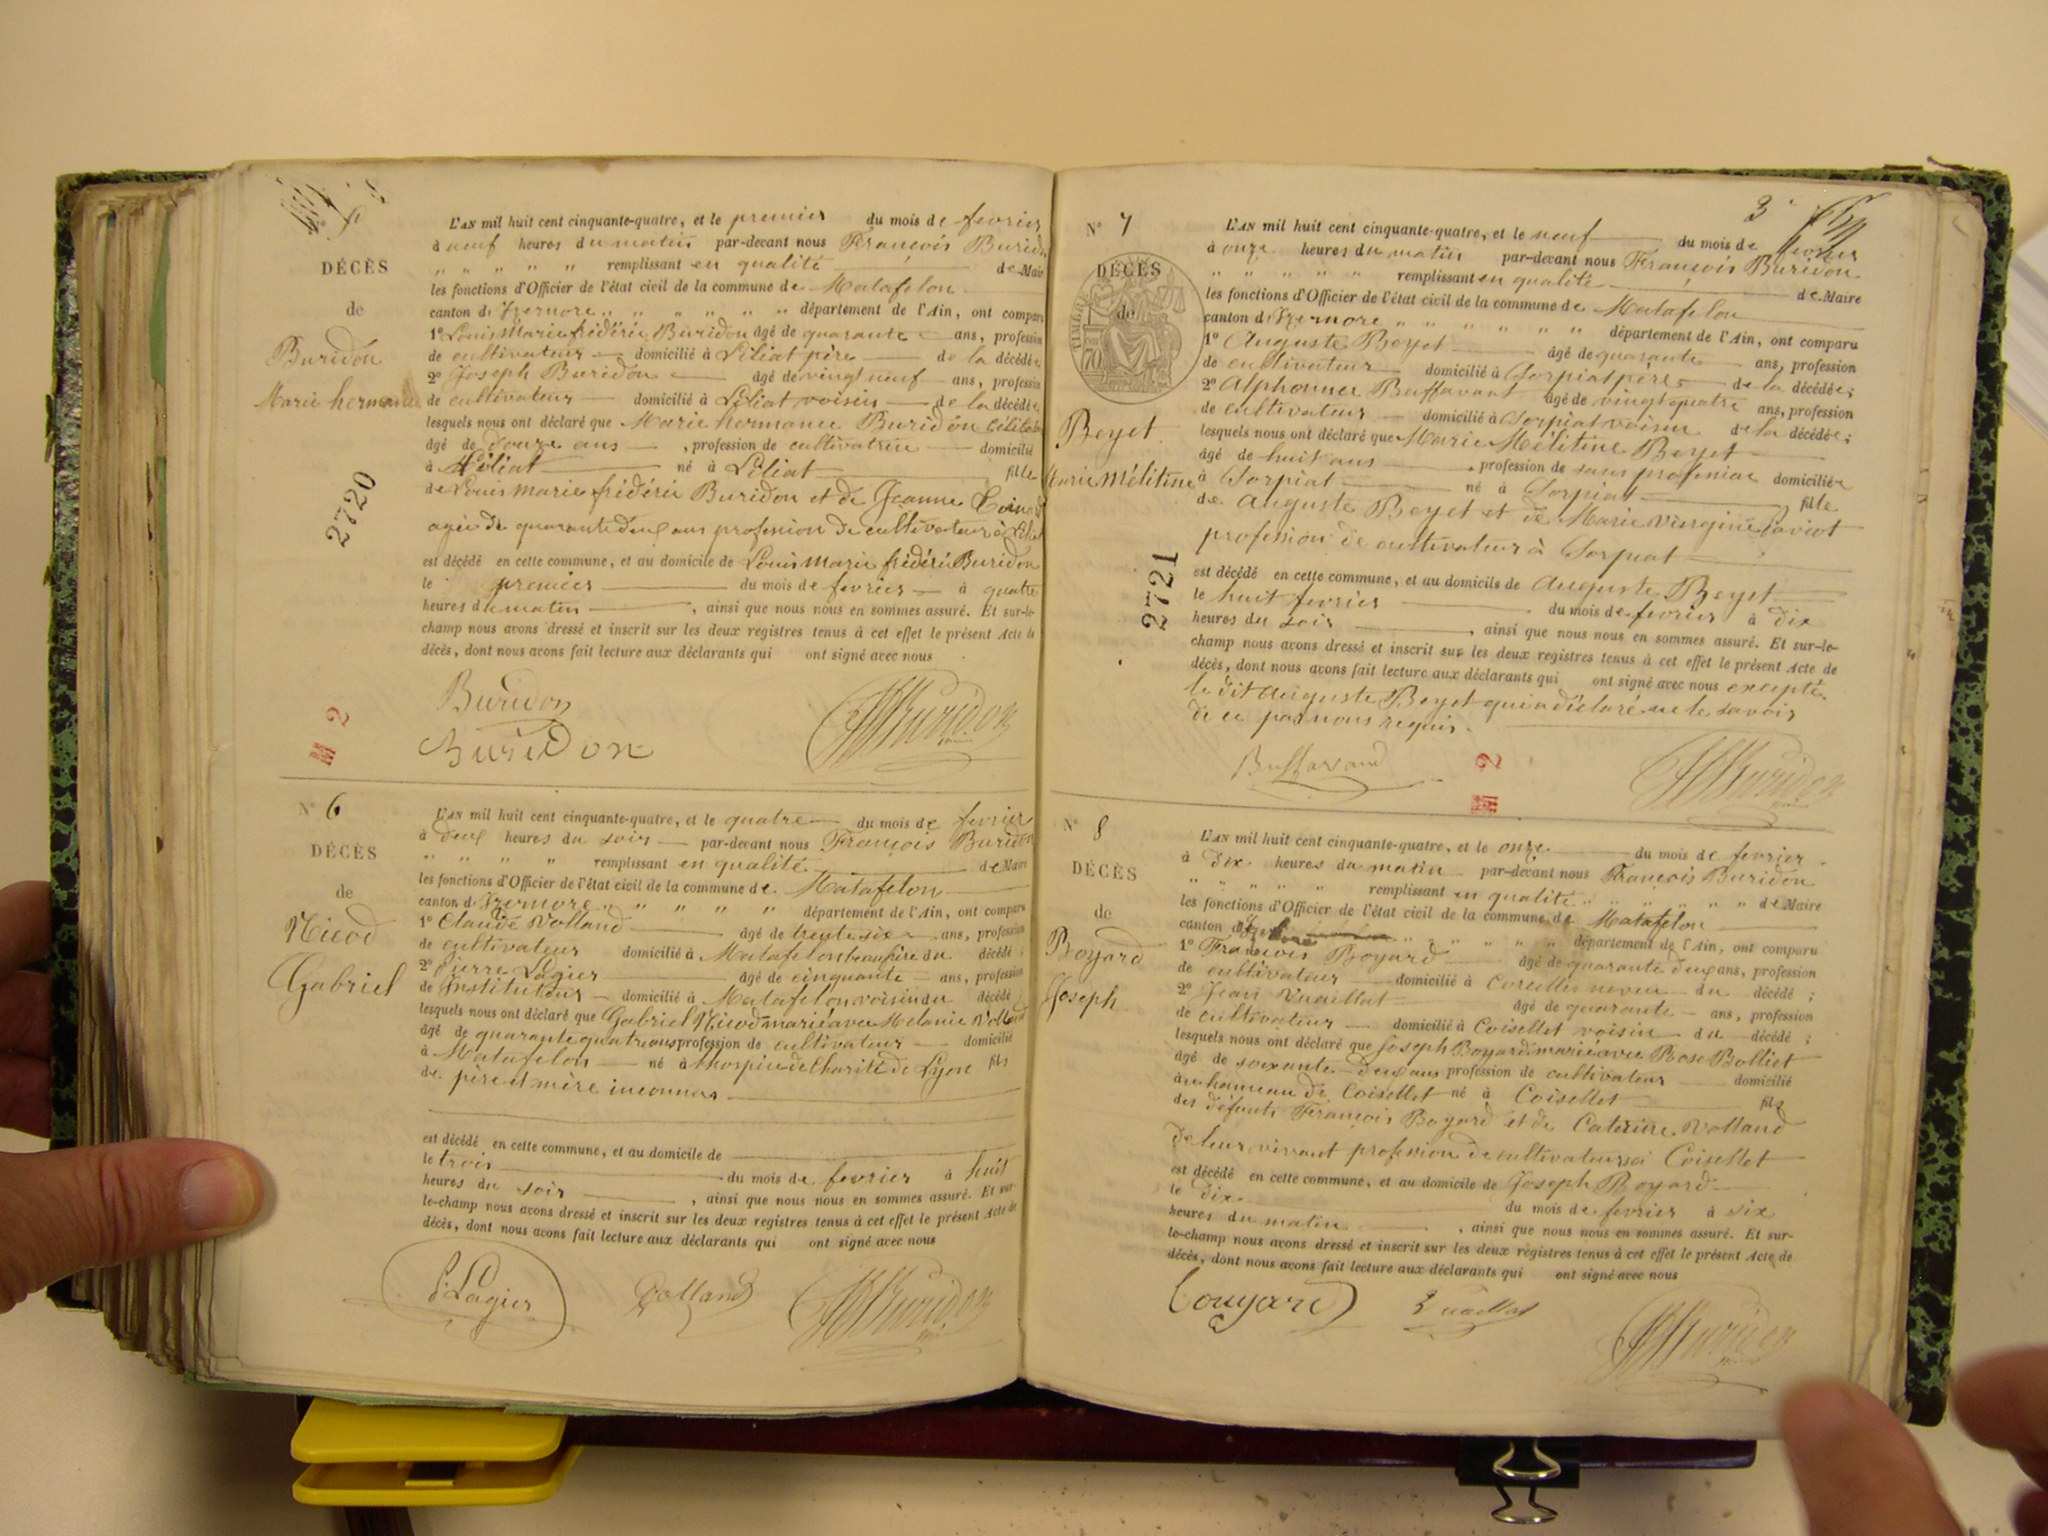 N° 5
DÉCÈS
de
Buridon
Marie hermance
2720
L'AN mil huit cent cinquante-quatre, et le premier du mois de fevrier
à neuf heures du matin par-devant nous François Buridon
" " " " " remplissant en qualité de Maire
les fonctions d'Officier de l'état civil de la commune de Matafelon
canton d'Izernore " " " " " " département de l'Ain, ont comparu
1° Louis Marie frédéric Buridon âgé de quarante ans, profession
de cultivateur domicilié à Liliat père de la décédée
2° Joseph Buridon âgé de vingt neuf ans, profession
de cultivateur domicilié à Liliat voisin de la décédée
lesquels nous ont déclaré que Marie hermance Buridon
âgé de douze ans, profession de cultivatrice domicilié
à Liliat né à Liliat fille
de Louis Marie frédéric Buridon et de Jeanne
agée de quarante deux ans profession de cultivateur à
est décédé en cette commune, et au domicile de Louis Marie frédéric Buridon
le premier du mois de fevrier à quatre
heures du matin, ainsi que nous nous en sommes assuré. Et sur-le-
champ nous avons dressé et inscrit sur les deux registres tenus à cet effet le présent Acte de
décès, dont nous avons fait lecture aux déclarants qui ont signé avec nous
Buridon
Buridon
Buridon
2
N° 6
DÉCÈS
de
Nicod
Gabriel
L'AN mil huit cent cinquante-quatre, et le quatre du mois de fevrier
à deux heures du soir par-devant nous François Buridon
" " " " remplissant en qualité de Maire
les fonctions d'Officier de l'état civil de la commune de Matafelon
canton d'Izernore " " " " " département de l'Ain, ont comparu
1° Claude Volland âgé de trente six ans, profession
de cultivateur domicilié à Matafelon beau père du décédé ;
2° Pierre Lagier âgé de cinquante ans, profession
de Instituteur domicilié à Matafelon voisin du décédé ;
lesquels nous ont déclaré que Gabriel Nicod marié avec Melanie Volland
âgé de quarante quatre ans profession de cultivateur domicilié
à Matafelon né à l'hospice de Charité de Lyon fils
de père et mère inconnus
est décédé en cette commune, et au domicile de
le trois du mois de fevrier à huit
heures du soir, ainsi que nous nous en sommes assuré. Et sur-
le-champ nous avons dressé et inscrit sur les deux registres tenus à cet effet le présent Acte de
décès, dont nous avons fait lecture aux déclarants qui ont signé avec nous
P. Lagier Volland Buridon
3
N° 7
DÉCÈS
de
TIMBRE
70
Beyet
Marie Mélitine
2721
L'AN mil huit cent cinquante-quatre, et le neuf du mois de fevrier
à onze heures du matin par-devant nous François Buridon
" " " " " remplissant en qualité de Maire
les fonctions d'Officier de l'état civil de la commune de Matafelon
canton d'Izernore " " " " " " département de l'Ain, ont comparu
1° Auguste Beyet âgé de quarante ans, profession
de cultivateur domicilié à Corpiat père de la décédée ;
2° Alphonse Buffavant âgé de vingt quatre ans, profession
de cultivateur domicilié à Corpiat voisin de la décédée ;
lesquels nous ont déclaré que Marie Mélitine Beyet
âgé de huit ans, profession de sans profession domiciliée
à Corpiat né à Corpiat fille
de Auguste Beyet et de Marie Virginie
profession de cultivateur à Corpiat
est décédé en cette commune, et au domicile de Auguste Beyet
le huit fevrier du mois de fevrier à dix
heures du soir, ainsi que nous nous en sommes assuré. Et sur-le-
champ nous avons dressé et inscrit sur les deux registres tenus à cet effet le présent Acte de
décès, dont nous avons fait lecture aux déclarants qui ont signé avec nous excepté
le dit Auguste Beyet qui a déclaré ne le savoir
de ce par nous requis.
Buffavand Buridon
2
N° 8
DÉCÈS
de
Boyard
Joseph
L'AN mil huit cent cinquante-quatre, et le onze du mois de fevrier
à dix heures du matin par-devant nous François Buridon
" " " " " remplissant en qualité " " " " " de Maire
les fonctions d'Officier de l'état civil de la commune de Matafelon
canton d'Izernore " " " " " " département de l'Ain, ont comparu
1° François Boyard âgé de quarante deux ans, profession
de cultivateur domicilié à Corcelles neveu du décédé ;
2° Jean Vuaillat âgé de quarante ans, profession
de cultivateur domicilié à Coisellet voisin du décédé ;
lesquels nous ont déclaré que Joseph Boyard marié avec Rose Bolliet
âgé de soixante deux ans profession de cultivateur domicilié
à au hameau de Coisellet né à Coisellet fils
des défunts François Boyard et de Caterine Volland
de leur vivant profession de cultivateurs à Coisellet
est décédé en cette commune, et au domicile de Joseph Boyard
le dix du mois de fevrier à six
heures du matin, ainsi que nous nous en sommes assuré. Et sur-
le-champ nous avons dressé et inscrit sur les deux registres tenus à cet effet le présent Acte de
décès, dont nous avons fait lecture aux déclarants qui ont signé avec nous
Bouyard Vuaillat Buridon